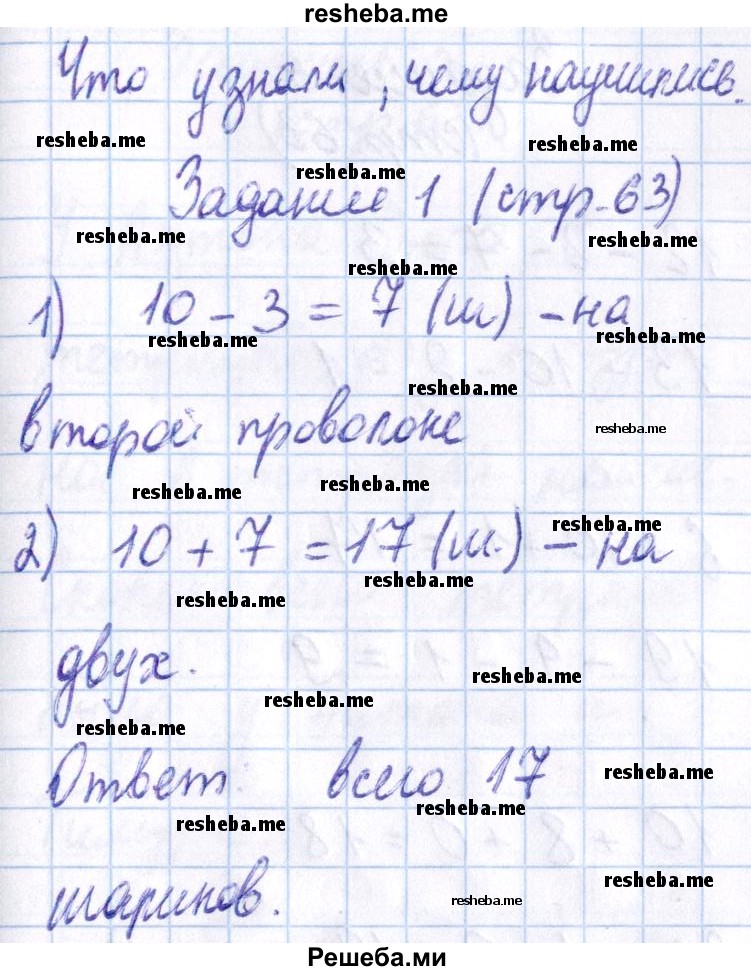 resheba.me
Что узнали, чему научились.
resheba.me
resheba.me
resheba.me
Задание 1 (стр. 63)
resheba.me
resheba.me
resheba.me
1) 10 - 3 = 7 (ш) - на
resheba.me
resheba.me
resheba.me
второй проволоке
resheba.me
resheba.me
resheba.me
resheba.me
2) 10 + 7 = 17 (ш.) - на
resheba.me
resheba.me
двух.
resheba.me
resheba.me
resheba.me
Ответ: всего 17
resheba.me
resheba.me
resheba.me
resheba.me
шариков.
resheba.me
Решеба.ми